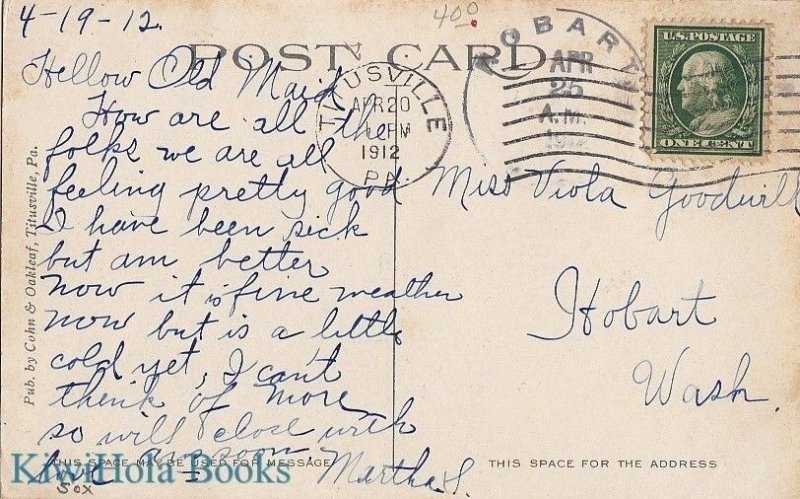 4-19-12.
400
POST CARD
Hellow Old Maid
How are all the
folks we are all
feeling pretty good
I have been sick
but am better
now it is fine weather
now but is a little
cold yet, I can't
think of more
so will close with
soon Martha S.
50x
TITUSVILLE
APR 20
PM
1912
PA.
HOBART
APR
25
A.M.
U.S. POSTAGE
ONE CENT
Miss Viola Goodwill
Hobart
Wash.
Pub. by Cohn & Oakleaf, Titusville, Pa.
THIS SPACE MAY BE USED FOR MESSAGE
THIS SPACE FOR THE ADDRESS
KiwiHola Books